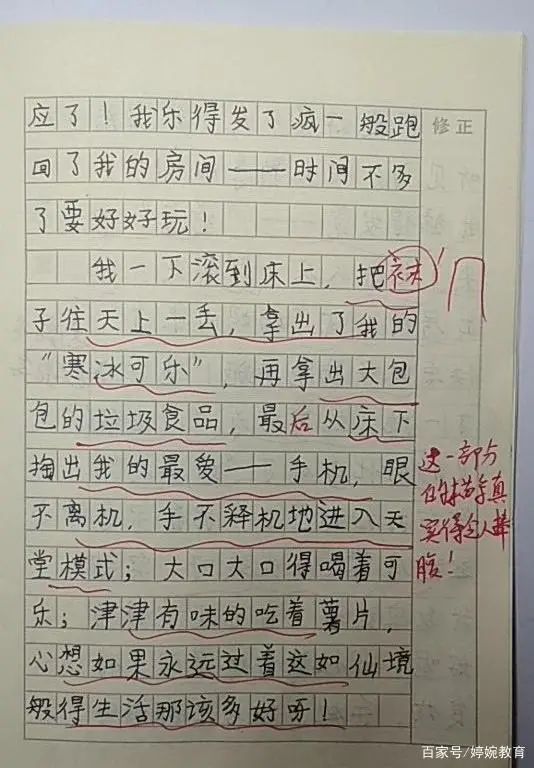 应了！我乐得发了疯一般跑
修正
回了我的房间——时间不多
了要好好玩！
我一下滚到床上，把袜
子往天上一丢，拿出了我的
“寒冰可乐”，再拿出大包
包的垃圾食品，最后从床下
掏出我的最爱——手机，眼
不离机，手不释机地进入天
堂模式；大口大口得喝着可
乐；津津有味的吃着薯片，
心想如果永远过着这如仙境
般得生活那该多好呀！
这一部分
的描写真
实得令人捧
腹！
百家号/婷婉教育